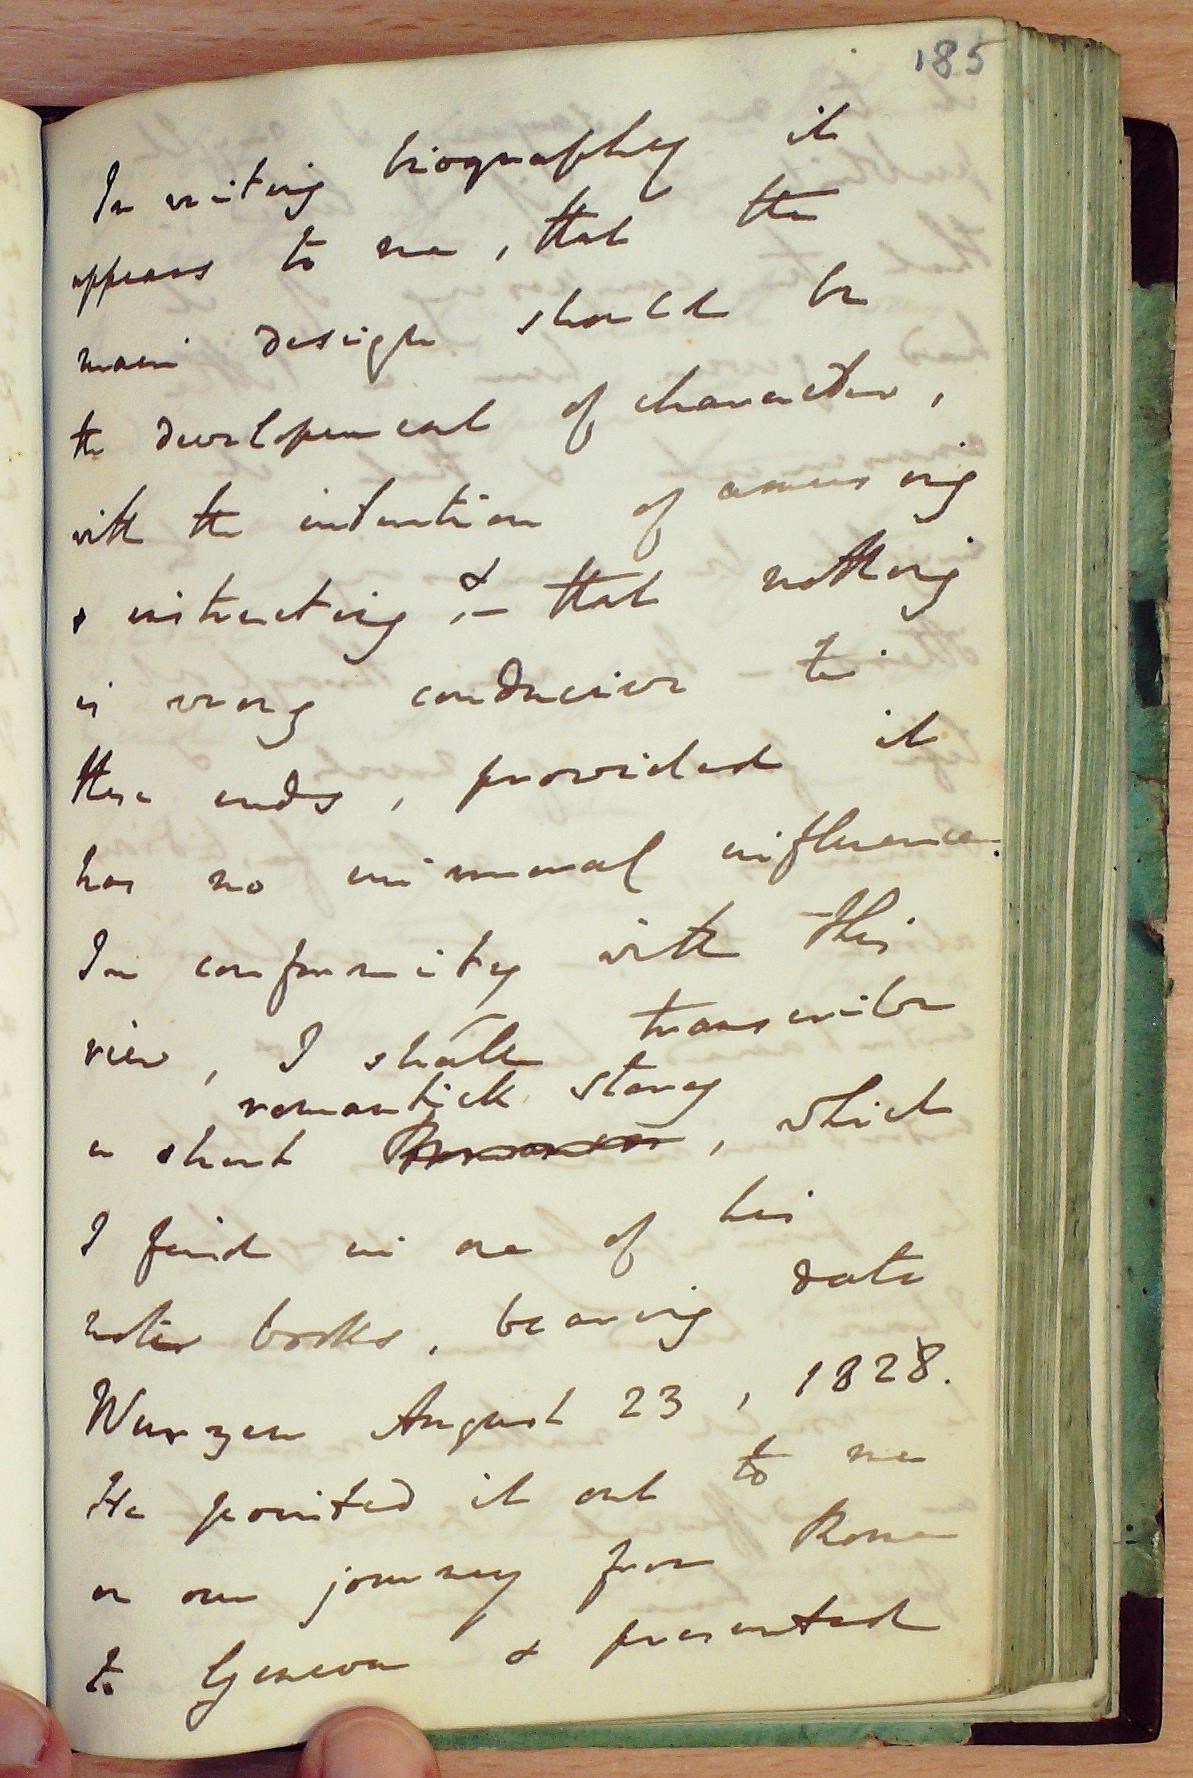 185
In writing biography it
appears to me, that the
main design should be
the development of character,
with the intention of amusing
& instructing, & – that nothing
is wrong conducive to
these ends, provided it
has no immoral influence.
In conformity with this
view, I shall transcribe
romantick story
a short Romance, which
I find in one of his
note books, bearing date
Wurzen August 23, 1828.
He pointed it out to me
on our journey from Rome
to Geneva & presented